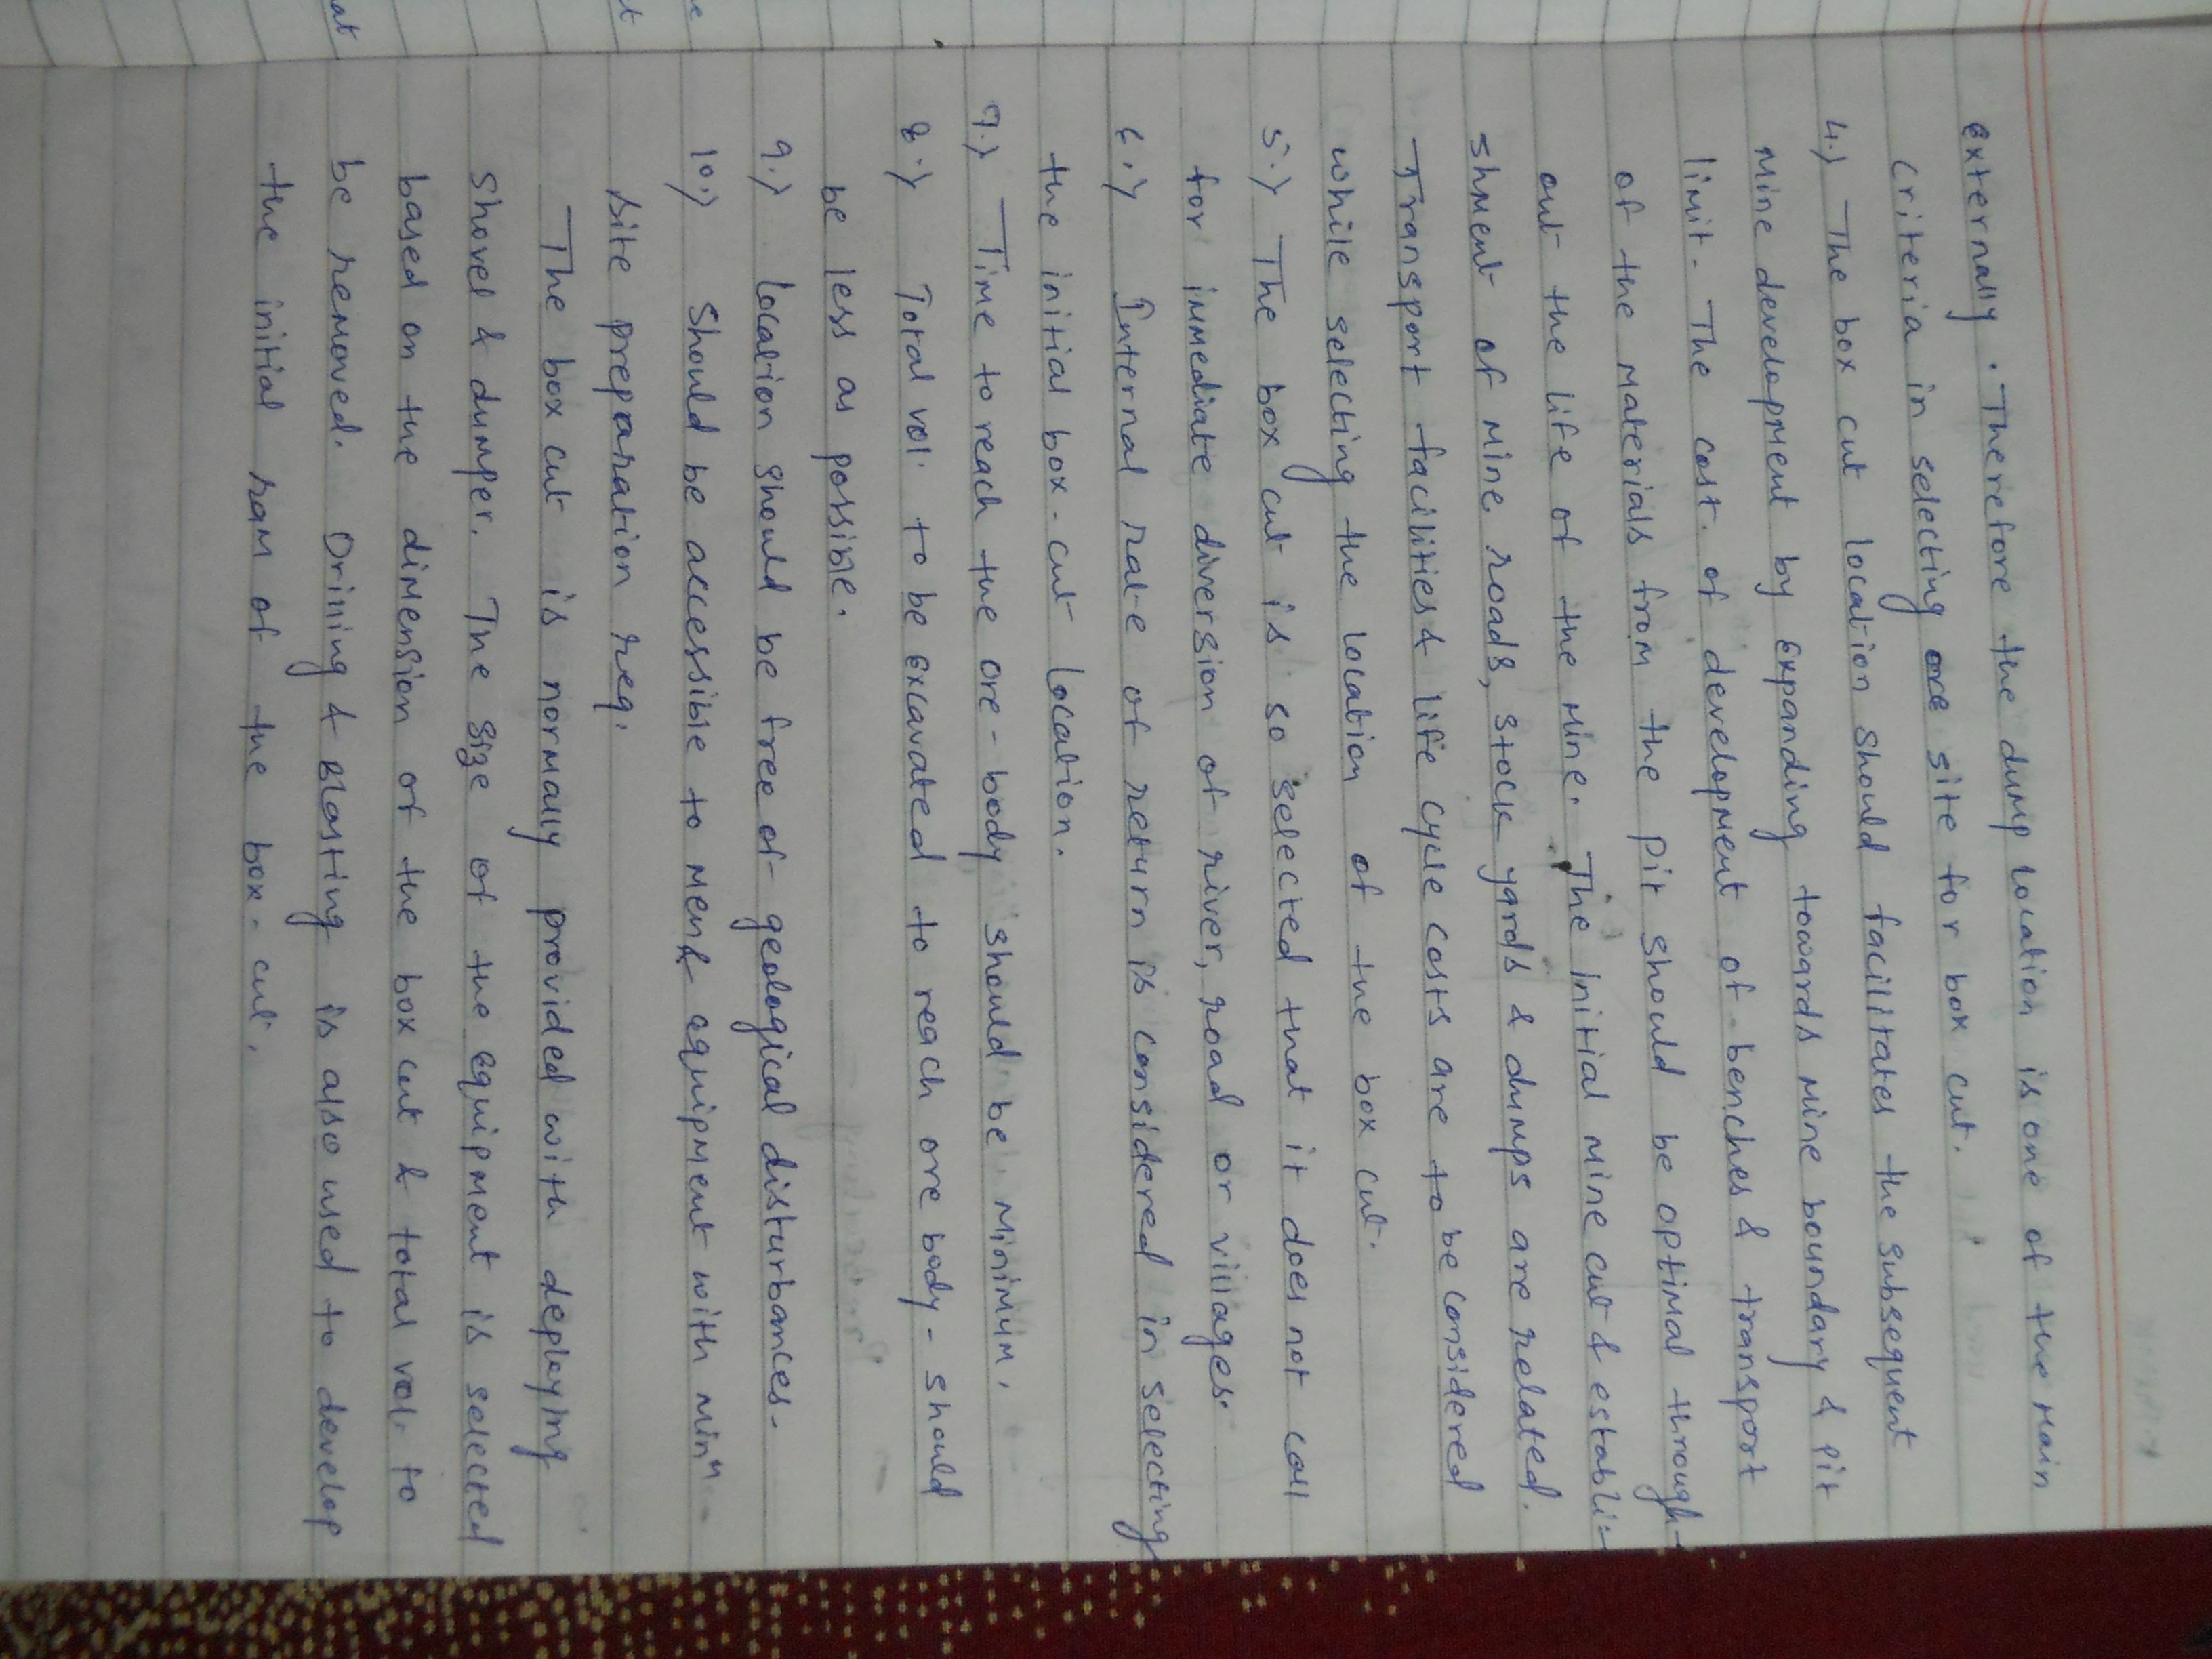 externally. Therefore the dump location is one of the main
criteria in selecting site for box cut.
4.) The box cut location should facilitates the subsequent
mine development by expanding towards mine boundary & pit
limit. The cost. of development of benches & transport
of the materials from the pit should be optimal through-
out the life of the mine. The initial mine cut & establi-
shment of mine roads, stock yards & dumps are related.
Transport facilities & life cycle costs are to be considered
while selecting the location of the box cut.
5.) The box cut is so selected that it does not call
for immediate diversion of river, road or villages.
6.) Internal rate of return is considered in selecting
the initial box-cut location.
7.) Time to reach the ore-body should be minimum.
8.) Total vol. to be excavated to reach ore body - should
be less as possible.
9.) location should be free of geological disturbances.
10.) Should be accessible to men & equipment with min^m
site preparation req.
The box cut is normally provided with deploying
shovel & dumper. The size of the equipment is selected
based on the dimension of the box cut & total vol. to
be removed. Drining & Blasting is also used to develop
the initial ram of the box-cut.
at
t
e